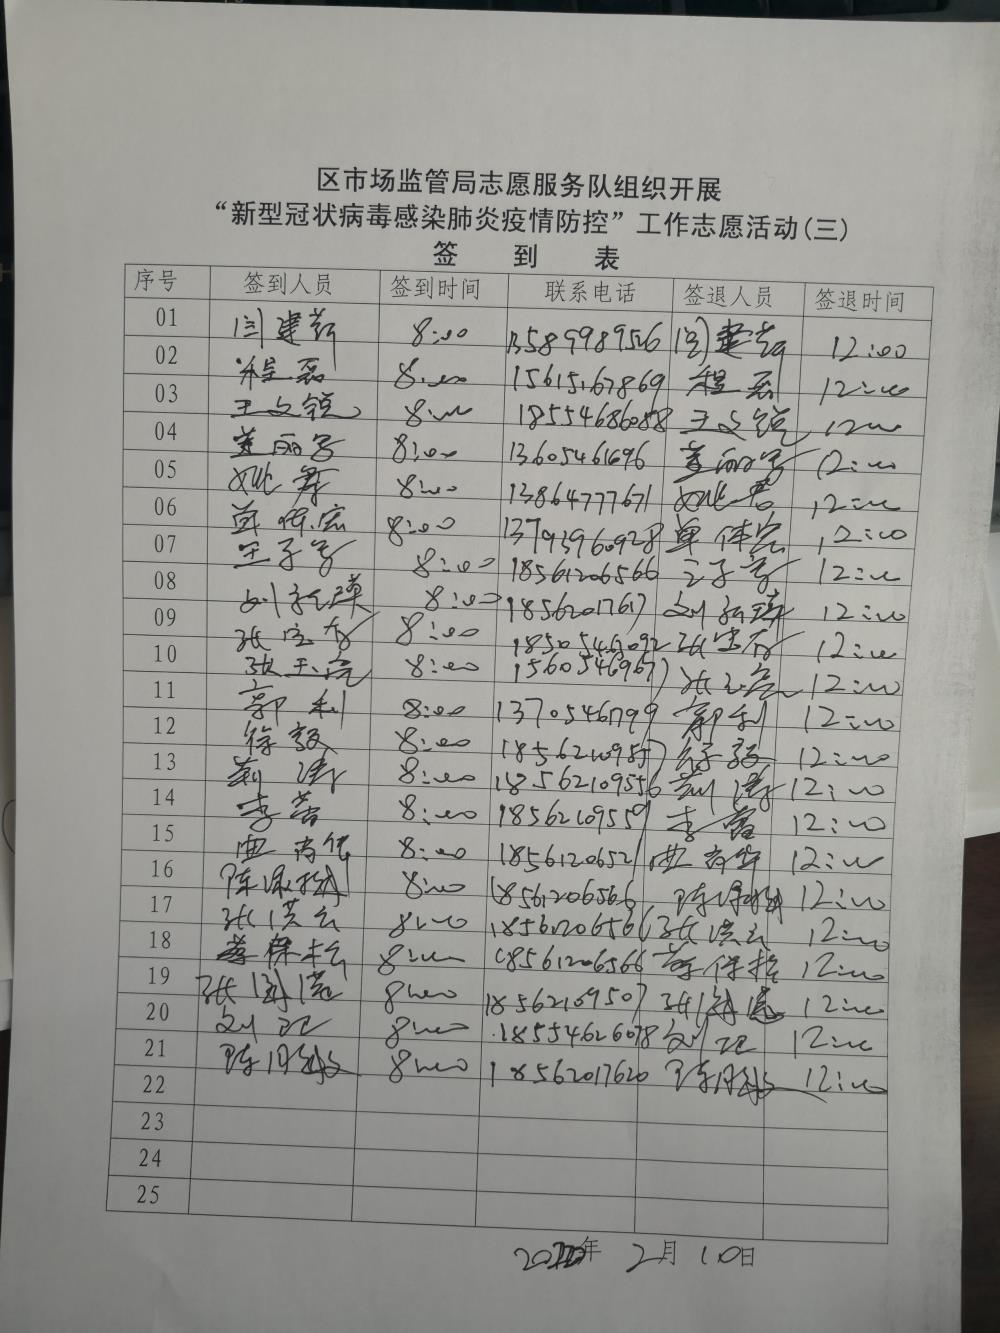 区市场监管局志愿服务队组织开展
“新型冠状病毒感染肺炎疫情防控”工作志愿活动(三)
签 到 表
序号 签到人员 签到时间 联系电话 签退人员 签退时间
01 闫建新 8:00 13589989526 闫建新 12:00
02 程磊 8:00 15615167869 程磊 12:00
03 王文锐 8:00 18554686088 王文锐 12:00
04 姜丽 8:00 13605461696 姜丽 12:00
05 姚 8:00 13864777671 姚 12:00
06 单体宏 8:00 13793960928 单体宏 12:00
07 王子 8:00 18561206566 王子 12:00
08 刘 8:00 18562017617 刘 12:00
09 张宝 8:00 18505469092 张宝 12:00
10 张玉亮 8:00 15605469677 张玉亮 12:00
11 郭利 8:00 13705461799 郭利 12:00
12 徐毅 8:00 18562109557 徐毅 12:00
13 荆涛 8:00 18562109556 荆涛 12:00
14 李蕾 8:00 1856210955 李蕾 12:00
15 曲 8:00 1856120652 曲 12:00
16 陈 8:00 18561206566 陈 12:00
17 张洪云 8:00 1856120656 张洪云 12:00
18 保 8:00 18561206566 保 12:00
19 张 8:00 18562109507 张 12:00
20 刘 8:00 18554626078 刘 12:00
21 陈月 8:00 18562017620 陈月 12:00
22
23
24
25
2020年 2月 10日